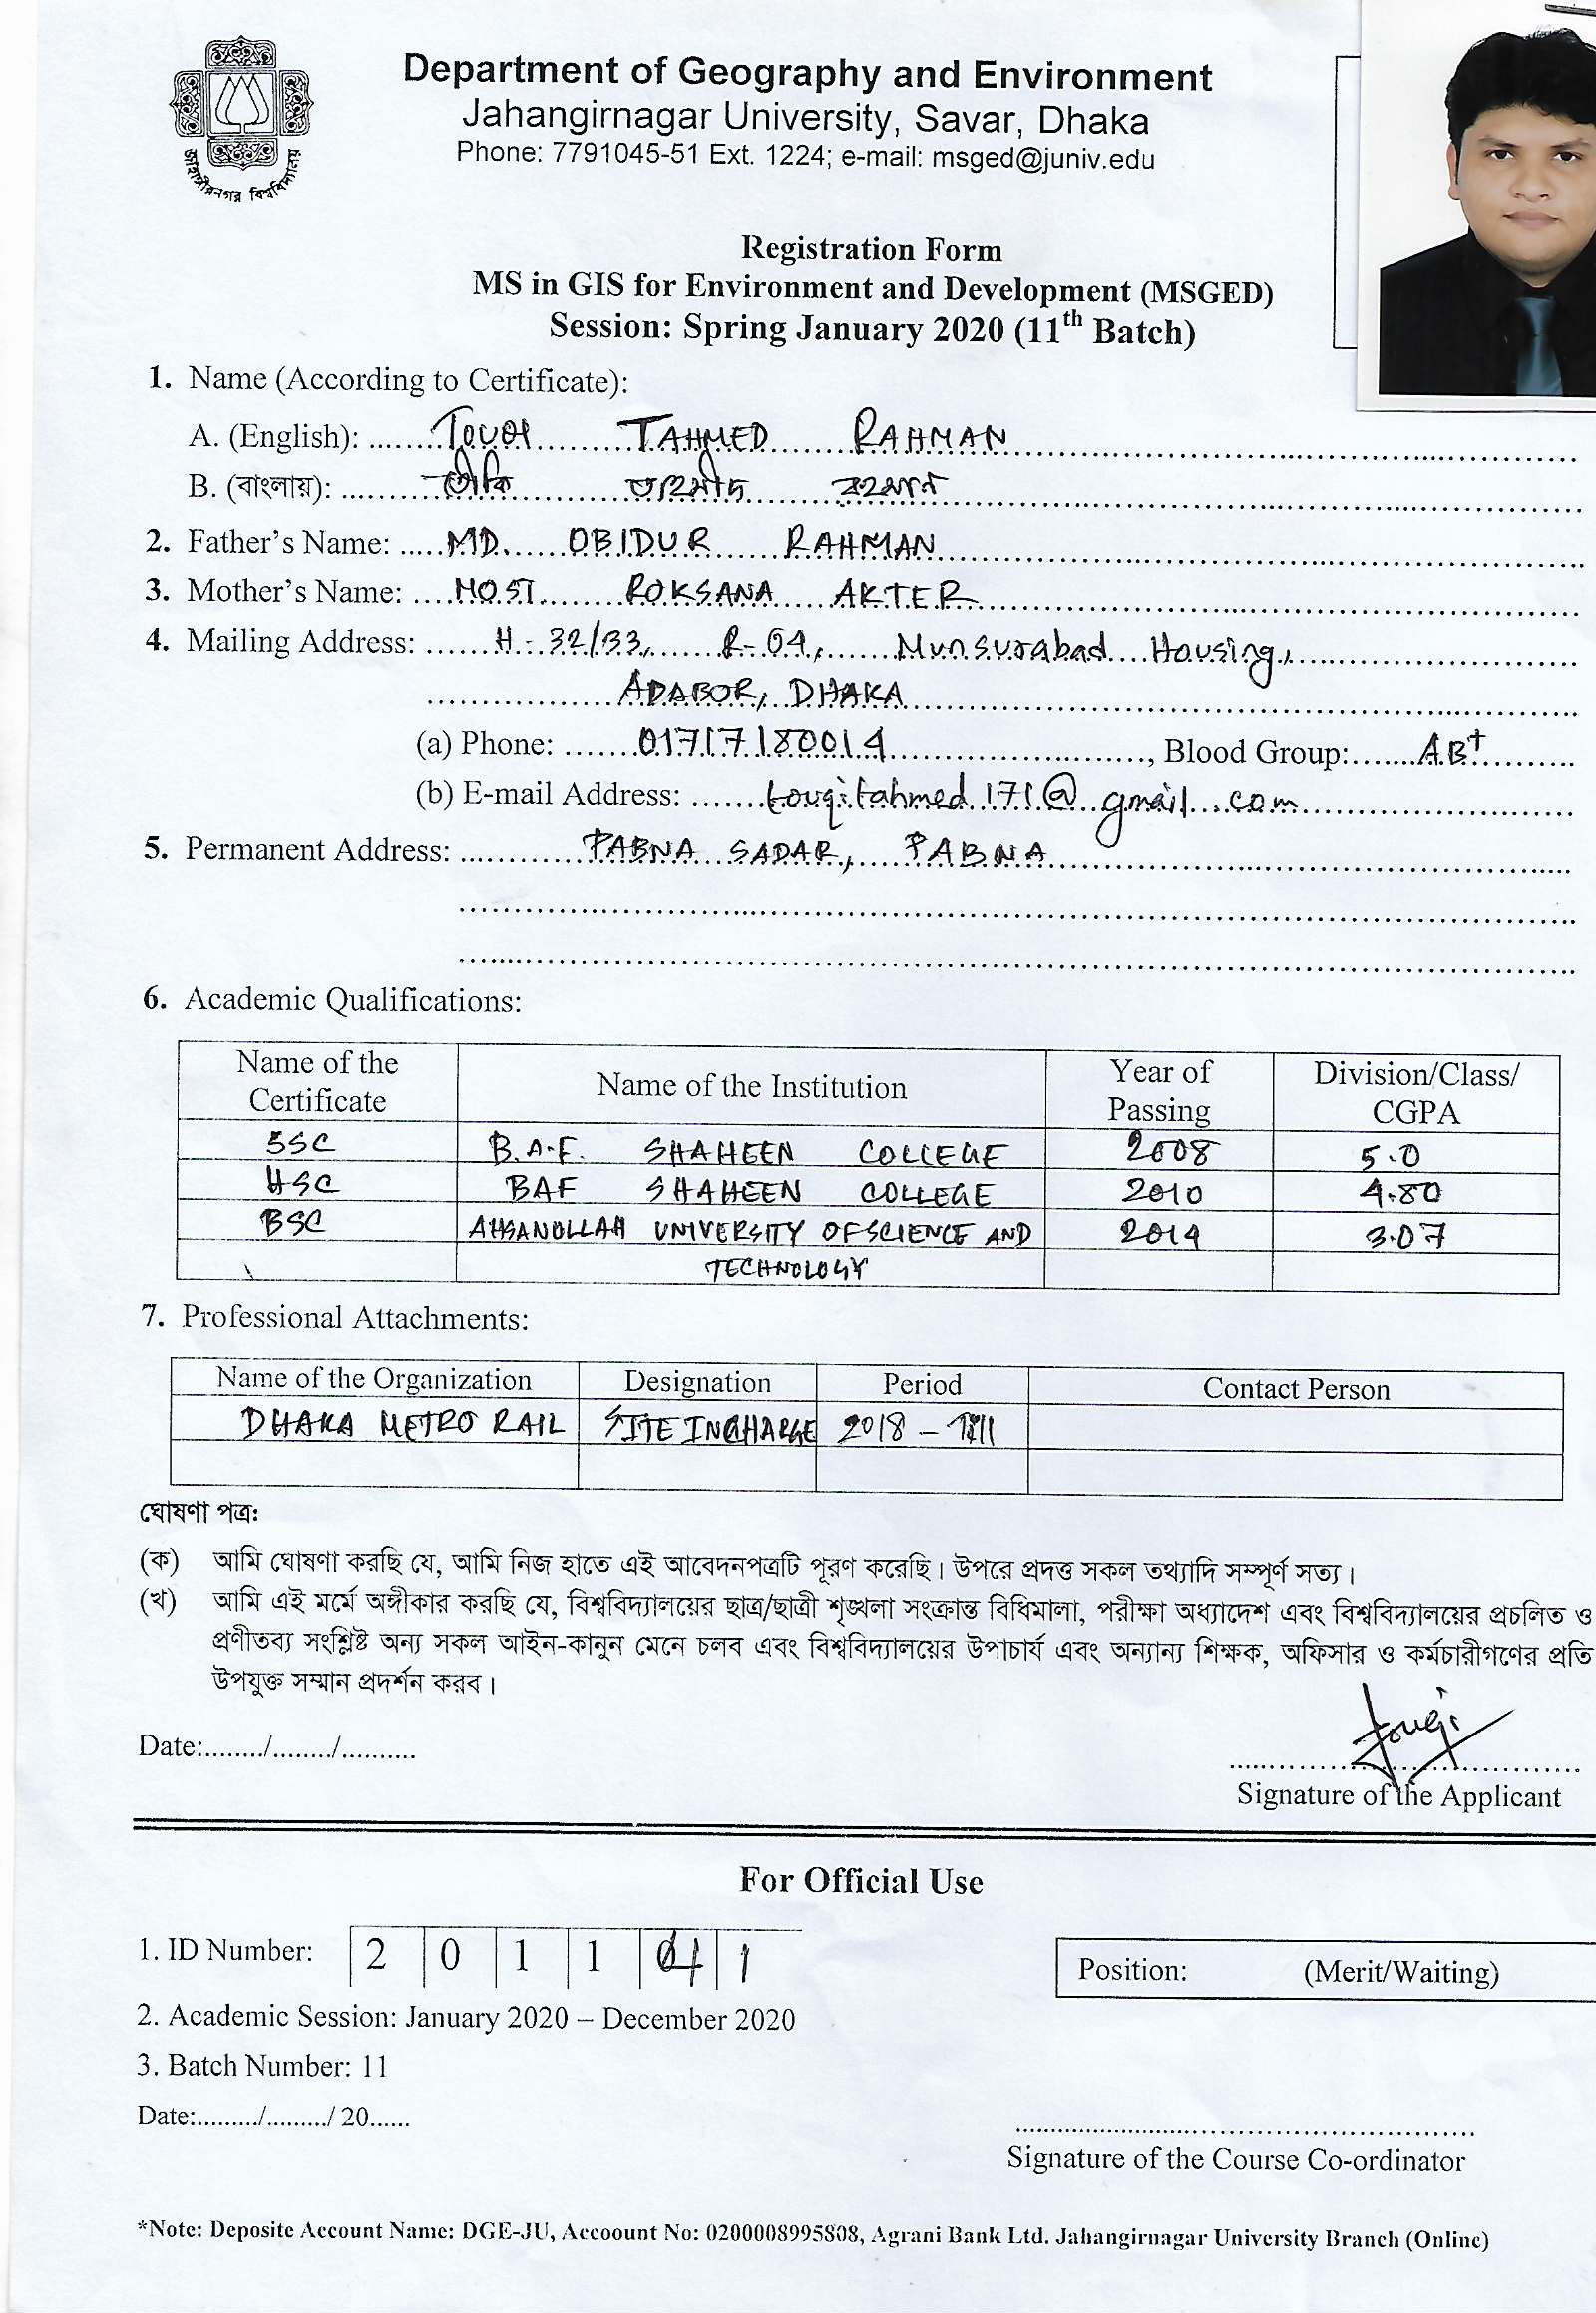 জাহাঙ্গীরনগর বিশ্ববিদ্যালয়
Department of Geography and Environment
Jahangirnagar University, Savar, Dhaka
Phone: 7791045-51 Ext. 1224; e-mail: msged@juniv.edu
Registration Form
MS in GIS for Environment and Development (MSGED)
Session: Spring January 2020 (11th Batch)
1. Name (According to Certificate):
A. (English): ........TOUQI TAHMED RAHMAN
B. (বাংলায়): .......... তৌকি তাহমীদ রহমান
2. Father's Name: .....MD. OBIDUR RAHMAN
3. Mother's Name: ....MOST. ROKSANA AKTER
4. Mailing Address: .......H-32/33, R-04, Munsurabad Housing,
ADABOR, DHAKA
(a) Phone: .......01717180014, Blood Group:.......AB+
(b) E-mail Address: .......touqitahmed171@gmail.com
5. Permanent Address: ...........PABNA SADAR, PABNA
6. Academic Qualifications:
Name of the Certificate Name of the Institution Year of Passing Division/Class/ CGPA
SSC B.A.F. SHAHEEN COLLEGE 2008 5.0
HSC BAF SHAHEEN COLLEGE 2010 4.80
BSC AHSANULLAH UNIVERSITY OF SCIENCE AND 2014 3.07
TECHNOLOGY
7. Professional Attachments:
Name of the Organization Designation Period Contact Person
DHAKA METRO RAIL SITE INCHARGE 2018 –
ঘোষণা পত্র:
(ক) আমি ঘোষণা করছি যে, আমি নিজ হাতে এই আবেদনপত্রটি পূরণ করেছি। উপরে প্রদত্ত সকল তথ্যাদি সম্পূর্ণ সত্য।
(খ) আমি এই মর্মে অঙ্গীকার করছি যে, বিশ্ববিদ্যালয়ের ছাত্র/ছাত্রী শৃঙ্খলা সংক্রান্ত বিধিমালা, পরীক্ষা অধ্যাদেশ এবং বিশ্ববিদ্যালয়ের প্রচলিত ও
প্রণীতব্য সংশ্লিষ্ট অন্য সকল আইন-কানুন মেনে চলব এবং বিশ্ববিদ্যালয়ের উপাচার্য এবং অন্যান্য শিক্ষক, অফিসার ও কর্মচারীগণের প্রতি
উপযুক্ত সম্মান প্রদর্শন করব।
Touqi
Date:......../......../..........
Signature of the Applicant
For Official Use
1. ID Number: 2 0 1 1 1
Position: (Merit/Waiting)
2. Academic Session: January 2020 – December 2020
3. Batch Number: 11
Date:........./........./ 20......
Signature of the Course Co-ordinator
*Note: Deposite Account Name: DGE-JU, Accoount No: 0200008995808, Agrani Bank Ltd. Jahangirnagar University Branch (Online)